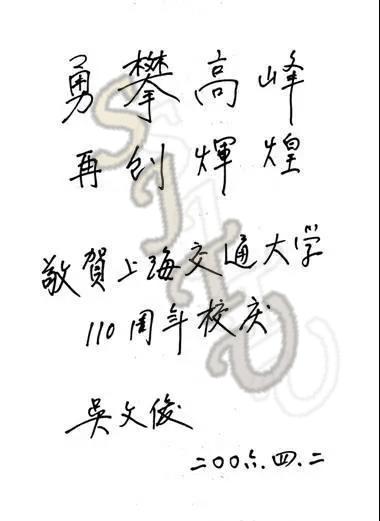 勇攀高峰
再创輝煌
敬賀上海交通大学
110周年校庆
吴文俊
二〇〇六.四.二
SJTU